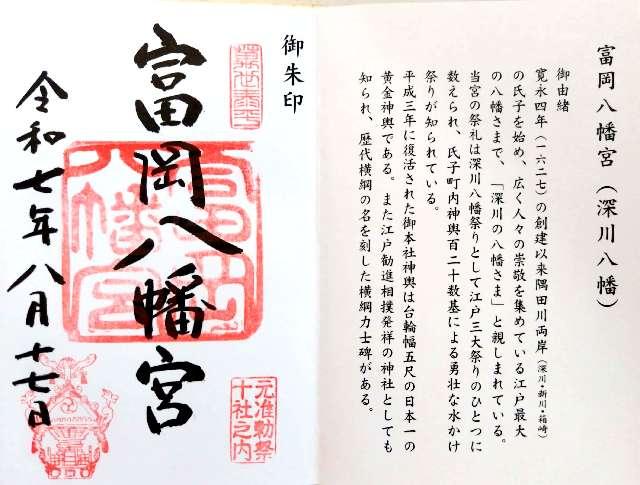 富岡八幡宮（深川八幡）
御由緒
寛永四年（一六二七）の創建以来隅田川両岸（深川・新川・箱崎）
の氏子を始め、広く人々の崇敬を集めている江戸最大
の八幡さまで、「深川の八幡さま」と親しまれている。
当宮の祭礼は深川八幡祭りとして江戸三大祭りのひとつに
数えられ、氏子町内神輿百二十数基による勇壮な水かけ
祭りが知られている。
平成三年に復活された御本社神輿は台輪幅五尺の日本一の
黄金神輿である。また江戸勧進相撲発祥の神社としても
知られ、歴代横綱の名を刻した横綱力士碑がある。
御朱印
富岡八幡宮
富岡
八幡宮
元准勅祭
十社之内
令和七年八月十七日